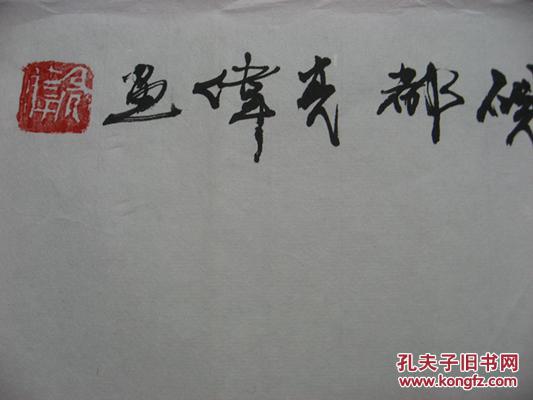 都亮偉画
孔夫子旧书网
www.kongfz.com